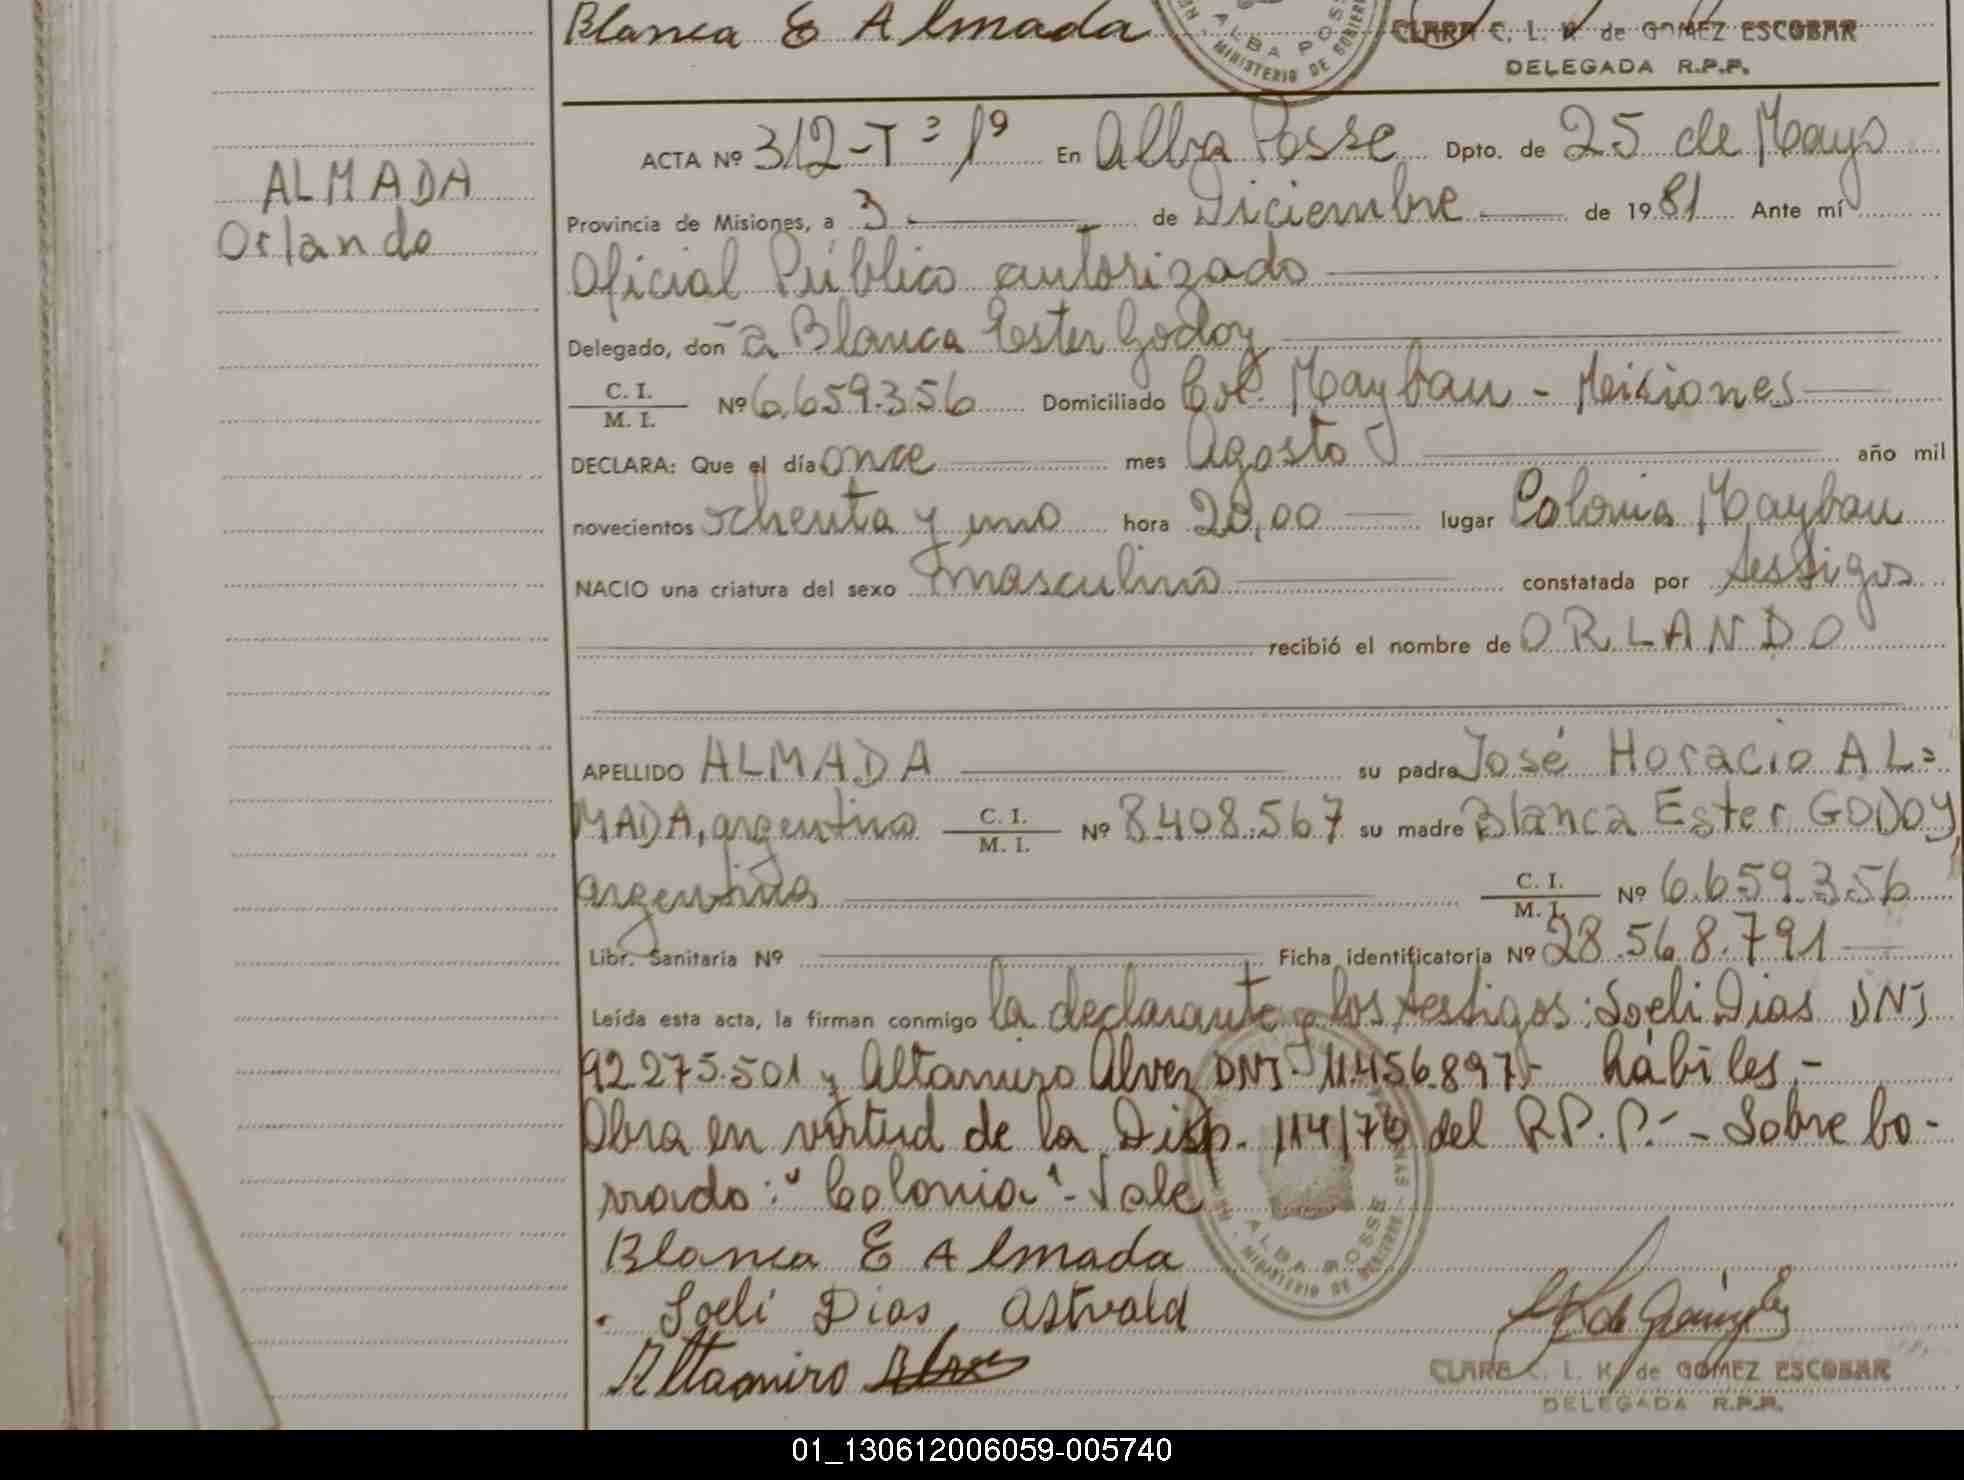 Blanca E Almada
ALBA POSSE
MINISTERIO DE GOBIERNO
CLARA C. L. K. de GOMEZ ESCOBAR
DELEGADA R.P.P.
ALMADA
Orlando
ACTA Nº 312-Tº 1º En Alba Posse Dpto. de 25 de Mayo
Provincia de Misiones, a 3 de Diciembre de 1981 Ante mí
Oficial Público autorizado
Delegado, don ~a Blanca Ester Godoy
C. I. / M. I. Nº 6.659.356 Domiciliado Col. Maybau - Misiones
DECLARA: Que el día once mes Agosto año mil
novecientos ochenta y uno hora 20,00 lugar Colonia Maybau
NACIO una criatura del sexo masculino constatada por testigos
recibió el nombre de ORLANDO
APELLIDO ALMADA su padre José Horacio AL=
MADA, argentino C. I. / M. I. Nº 8.408.567 su madre Blanca Ester GODOY,
argentina C. I. / M. I. Nº 6.659.356
Libr. Sanitaria Nº Ficha identificatoria Nº 28.568.791
Leída esta acta, la firman conmigo la declarante y los testigos: Soeli Dias DNI
92.275.501 y Altamiro Alvez DNI 11.456.897.- hábiles.-
Obra en virtud de la Disp. 114/76 del R.P.P.- - Sobre bo-
rrado: "Colonia"- Vale
Blanca E Almada
Soeli Dias Astvald
Altamiro
ALBA POSSE
MINISTERIO DE GOBIERNO
CLARA C. L. K. de GOMEZ ESCOBAR
DELEGADA R.P.P.
01_130612006059-005740